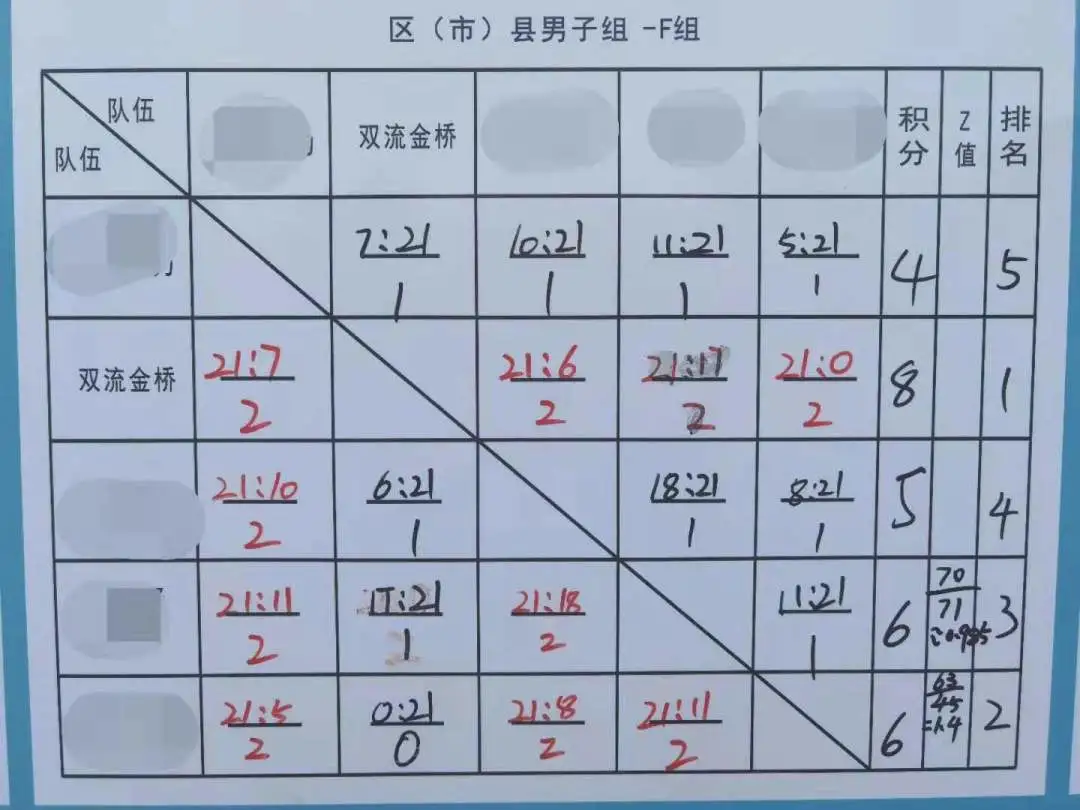 区（市）县男子组 -F组
队伍
队伍
双流金桥
积分
Z值
排名
7:21
1
10:21
1
11:21
1
5:21
1
4
5
双流金桥
21:7
2
21:6
2
21:17
2
21:0
2
8
1
21:10
2
6:21
1
18:21
1
8:21
1
5
4
21:11
2
17:21
1
21:18
2
11:21
1
6
70
71
≈0.985
3
21:5
2
0:21
0
21:8
2
21:11
2
6
63
45
=1.4
2